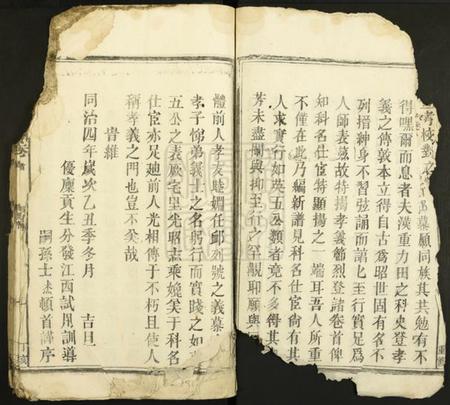 考校對
慕顧同族其共勉有不
得嘿爾而息者夫漢重力田之科史登孝
義之傳敦本立行得自古為昭世固有名不
列搢紳身不習弦誦而諸匕至行實足為
人師表茲故特揚孝義節烈登諸卷首俾
知科名仕宦特顯揚之一端耳吾人所重
不僅在此乃編新譜見科名仕宦倘有
人求實行如英五公類者竟不多得其
芳未盡闡與抑至行之罕覯耶願與
體前人孝友睦婣任卹列號之義慕
孝子悌弟義士之名躬行而實踐之如
五公之表厥宅里光昭志乘媲美于科名
仕宦亦足廸前人光相傳于不朽且使人
稱孝義之門也豈不矣哉
旹維
同治四年歲次乙丑季冬月 吉旦
優廩貢生分發江西試用訓導
嗣孫士 頓首謹序